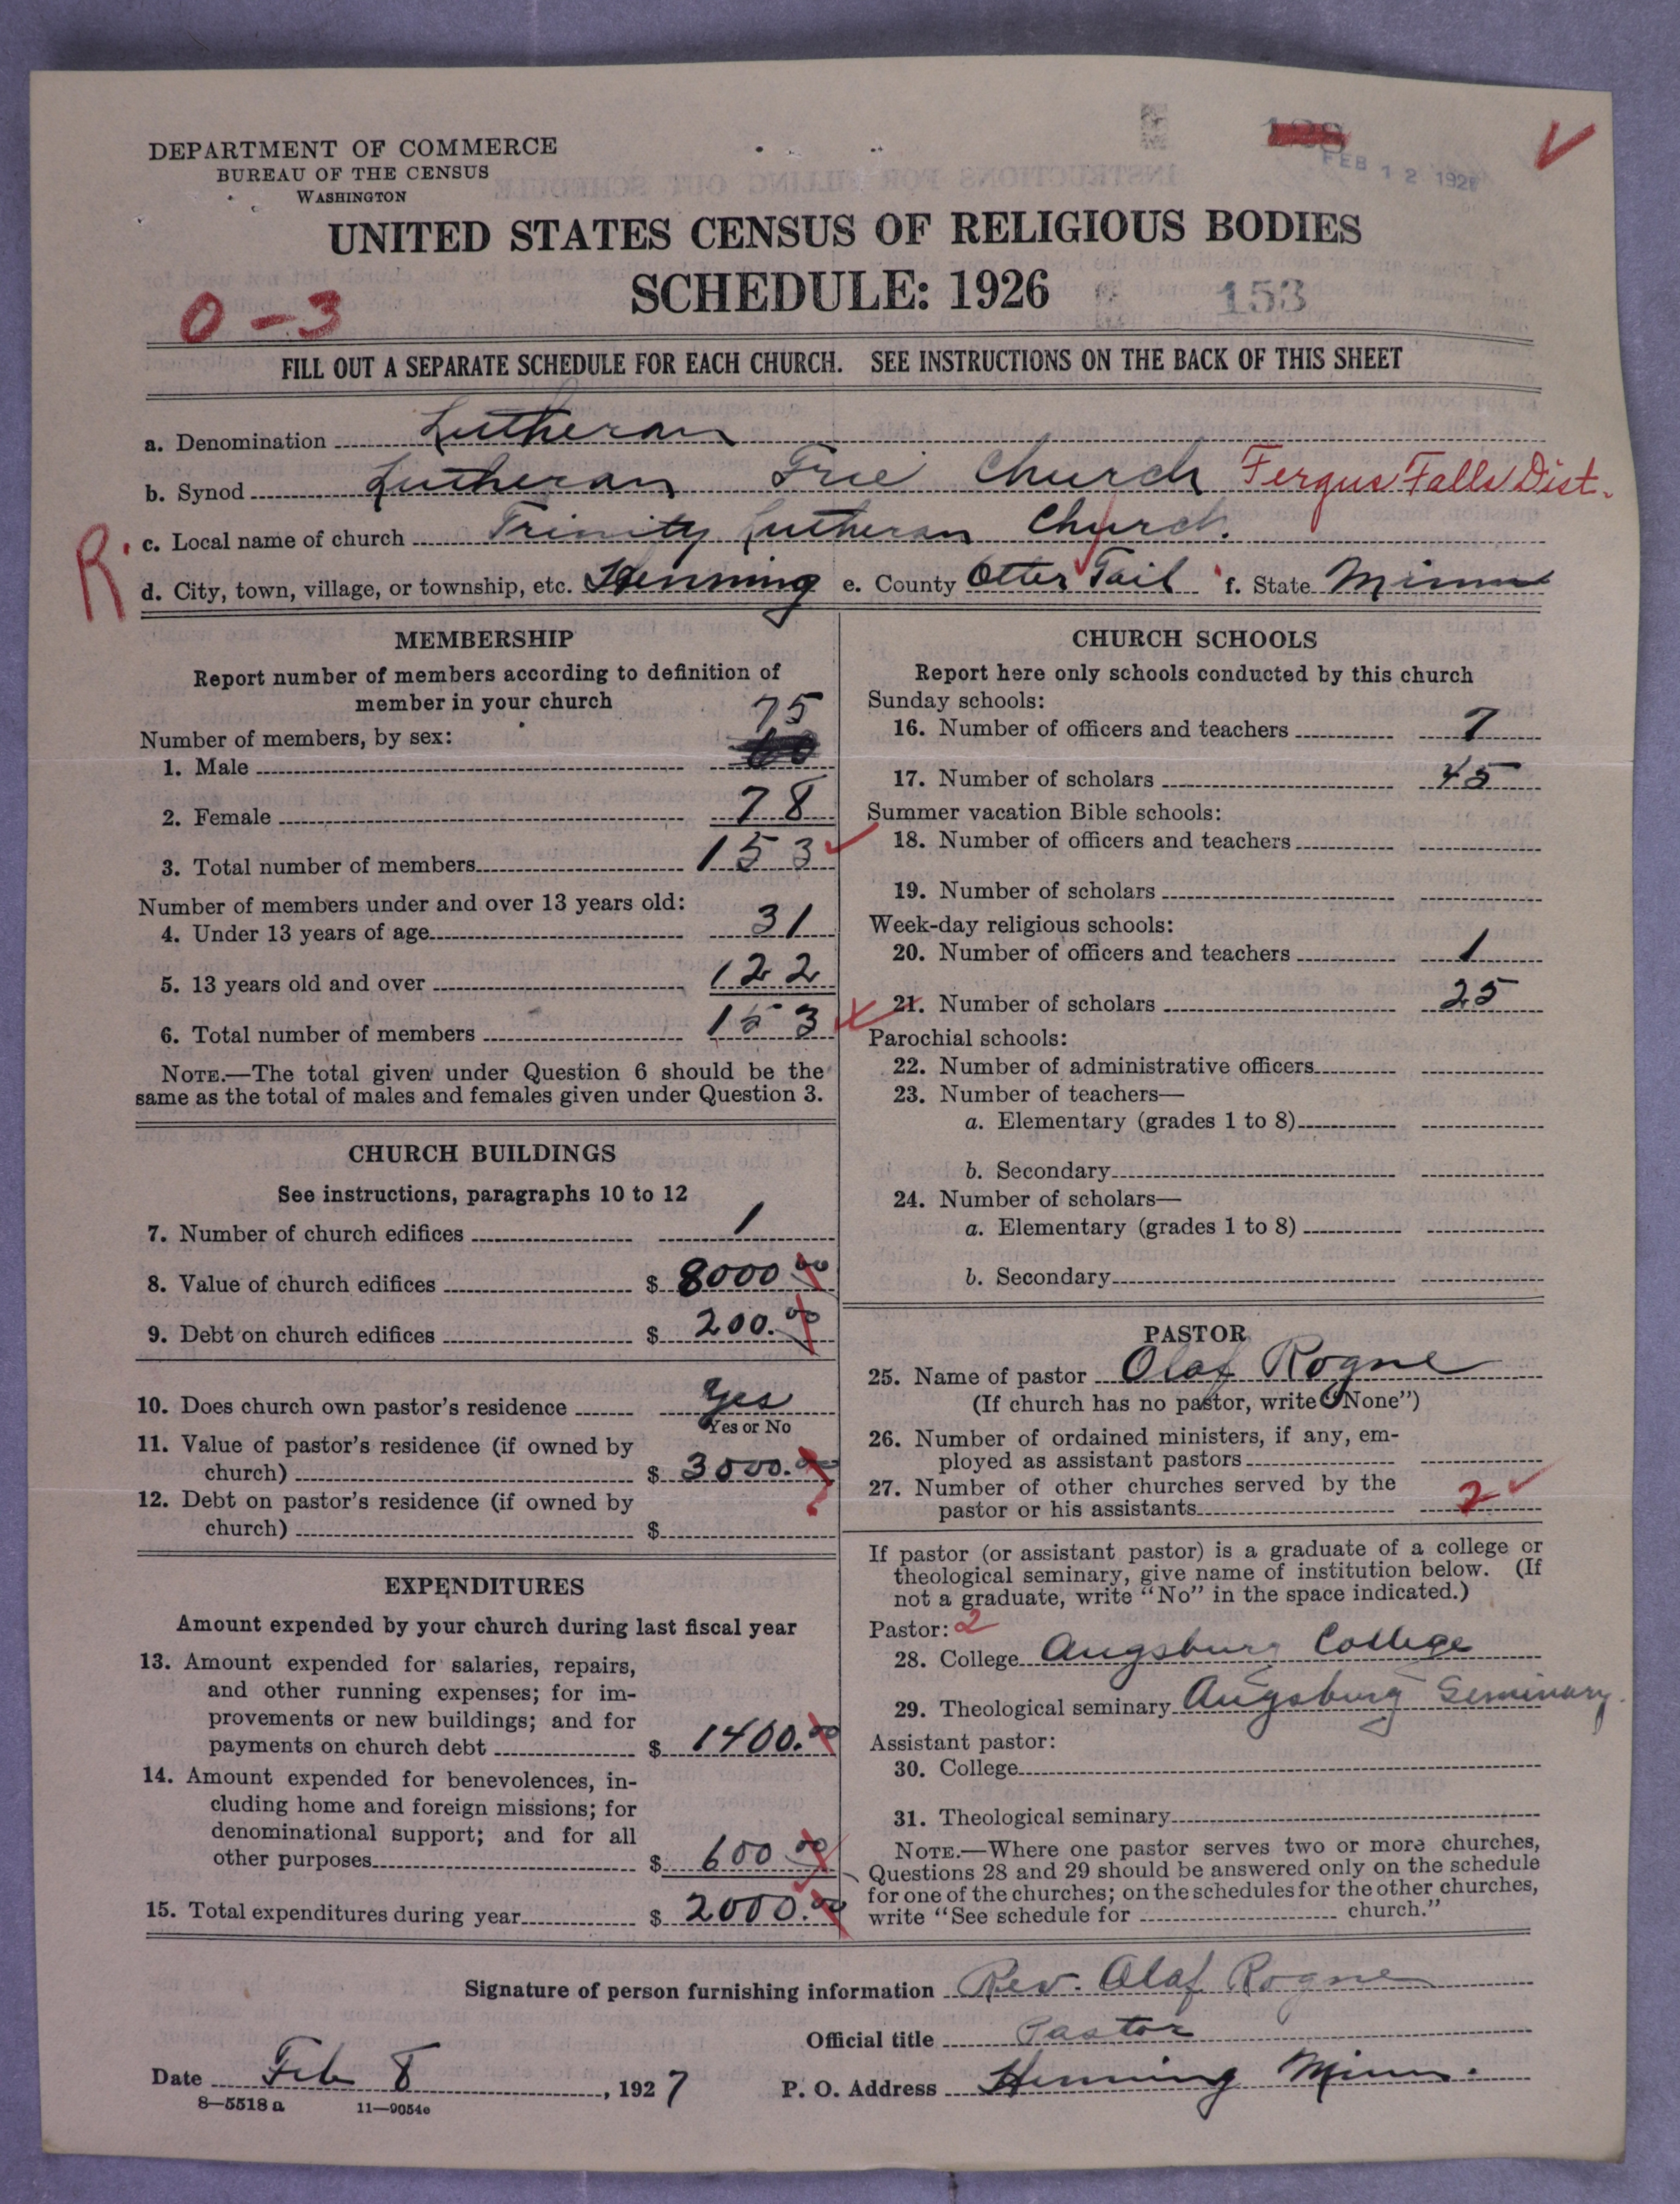 DEPARTMENT OF COMMERCE
BUREAU OF THE CENSUS
WASHINGTON
FEB 12 192
UNITED STATES CENSUS OF RELIGIOUS BODIES
SCHEDULE: 1926
153
0-3
FILL OUT A SEPARATE SCHEDULE FOR EACH CHURCH. SEE INSTRUCTIONS ON THE BACK OF THIS SHEET
a. Denomination Lutheran
b. Synod Lutheran Free Church Fergus Falls Dist.
R c. Local name of church Trinity Lutheran Church.
d. City, town, village, or township, etc. Henning e. County Otter Tail f. State Minn
MEMBERSHIP
Report number of members according to definition of
member in your church
Number of members, by sex:
1. Male 75
2. Female 78
3. Total number of members 153
Number of members under and over 13 years old:
4. Under 13 years of age 31
5. 13 years old and over 122
6. Total number of members 153
NOTE.—The total given under Question 6 should be the
same as the total of males and females given under Question 3.
CHURCH BUILDINGS
See instructions, paragraphs 10 to 12
7. Number of church edifices 1
8. Value of church edifices $ 8000 00
9. Debt on church edifices $ 200.00
10. Does church own pastor's residence Yes
Yes or No
11. Value of pastor's residence (if owned by
church) $ 3000.00
12. Debt on pastor's residence (if owned by
church) $
EXPENDITURES
Amount expended by your church during last fiscal year
13. Amount expended for salaries, repairs,
and other running expenses; for im-
provements or new buildings; and for
payments on church debt $ 1400.00
14. Amount expended for benevolences, in-
cluding home and foreign missions; for
denominational support; and for all
other purposes $ 600 00
15. Total expenditures during year $ 2000.00
CHURCH SCHOOLS
Report here only schools conducted by this church
Sunday schools:
16. Number of officers and teachers 7
17. Number of scholars 45
Summer vacation Bible schools:
18. Number of officers and teachers
19. Number of scholars
Week-day religious schools:
20. Number of officers and teachers 1
21. Number of scholars 25
Parochial schools:
22. Number of administrative officers
23. Number of teachers—
a. Elementary (grades 1 to 8)
b. Secondary
24. Number of scholars—
a. Elementary (grades 1 to 8)
b. Secondary
PASTOR
25. Name of pastor Olaf Rogne
(If church has no pastor, write "None")
26. Number of ordained ministers, if any, em-
ployed as assistant pastors
27. Number of other churches served by the
pastor or his assistants 2
If pastor (or assistant pastor) is a graduate of a college or
theological seminary, give name of institution below. (If
not a graduate, write "No" in the space indicated.)
Pastor: 2
28. College Augsburg College
29. Theological seminary Augsburg Seminary.
Assistant pastor:
30. College
31. Theological seminary
NOTE.—Where one pastor serves two or more churches,
Questions 28 and 29 should be answered only on the schedule
for one of the churches; on the schedules for the other churches,
write "See schedule for church."
Signature of person furnishing information Rev. Olaf Rogne
Official title Pastor
Date Feb 8, 1927 P. O. Address Henning Minn.
8—5518 a 11—9054e